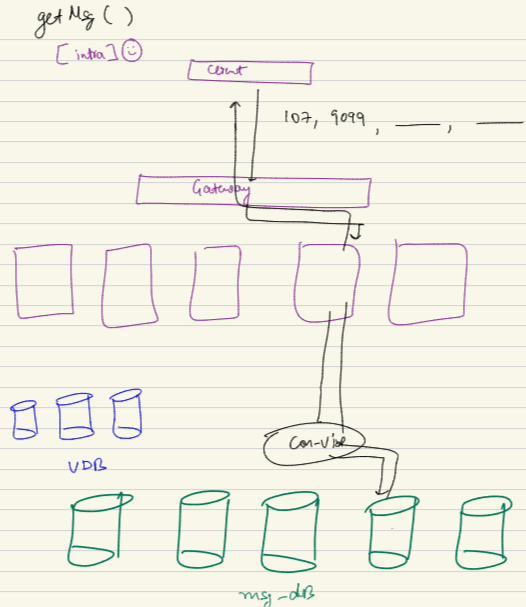 getMsg ( )
[intra]
Client
107, 9099, ——, ——
Gateway
UDB
msg-dB